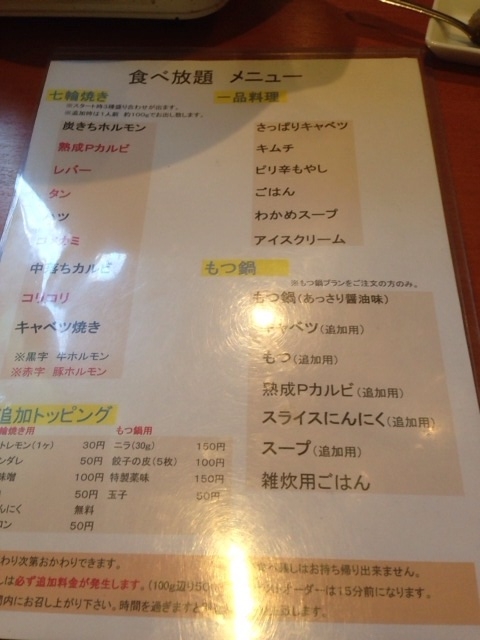 食べ放題 メニュー
七輪焼き
※スタート時3種盛り合わせが出ます。
※追加時は1人前 約100gでお出し致します。
炭きちホルモン
熟成Pカルビ
レバー
タン
ツ
カミ
中落ちカルビ
コリコリ
キャベツ焼き
※黒字 牛ホルモン
※赤字 豚ホルモン
一品料理
さっぱりキャベツ
キムチ
ピリ辛もやし
ごはん
わかめスープ
アイスクリーム
もつ鍋
※もつ鍋プランをご注文の方のみ。
もつ鍋(あっさり醤油味)
キャベツ(追加用)
もつ(追加用)
熟成Pカルビ(追加用)
スライスにんにく(追加用)
スープ(追加用)
雑炊用ごはん
追加トッピング
輪焼き用
トレモン(1ヶ) 30円
ンダレ 50円
味噌 100円
50円
んにく 無料
ロン 50円
もつ鍋用
ニラ(30g) 150円
餃子の皮(5枚) 100円
特製薬味 150円
玉子 50円
わり次第おかわりできます。
しは必ず追加料金が発生します。(100g辺り50
間内にお召し上がり下さい。時間を過ぎますと
食べ残しはお持ち帰り出来ません。
ストオーダーは15分前になります。
致します。